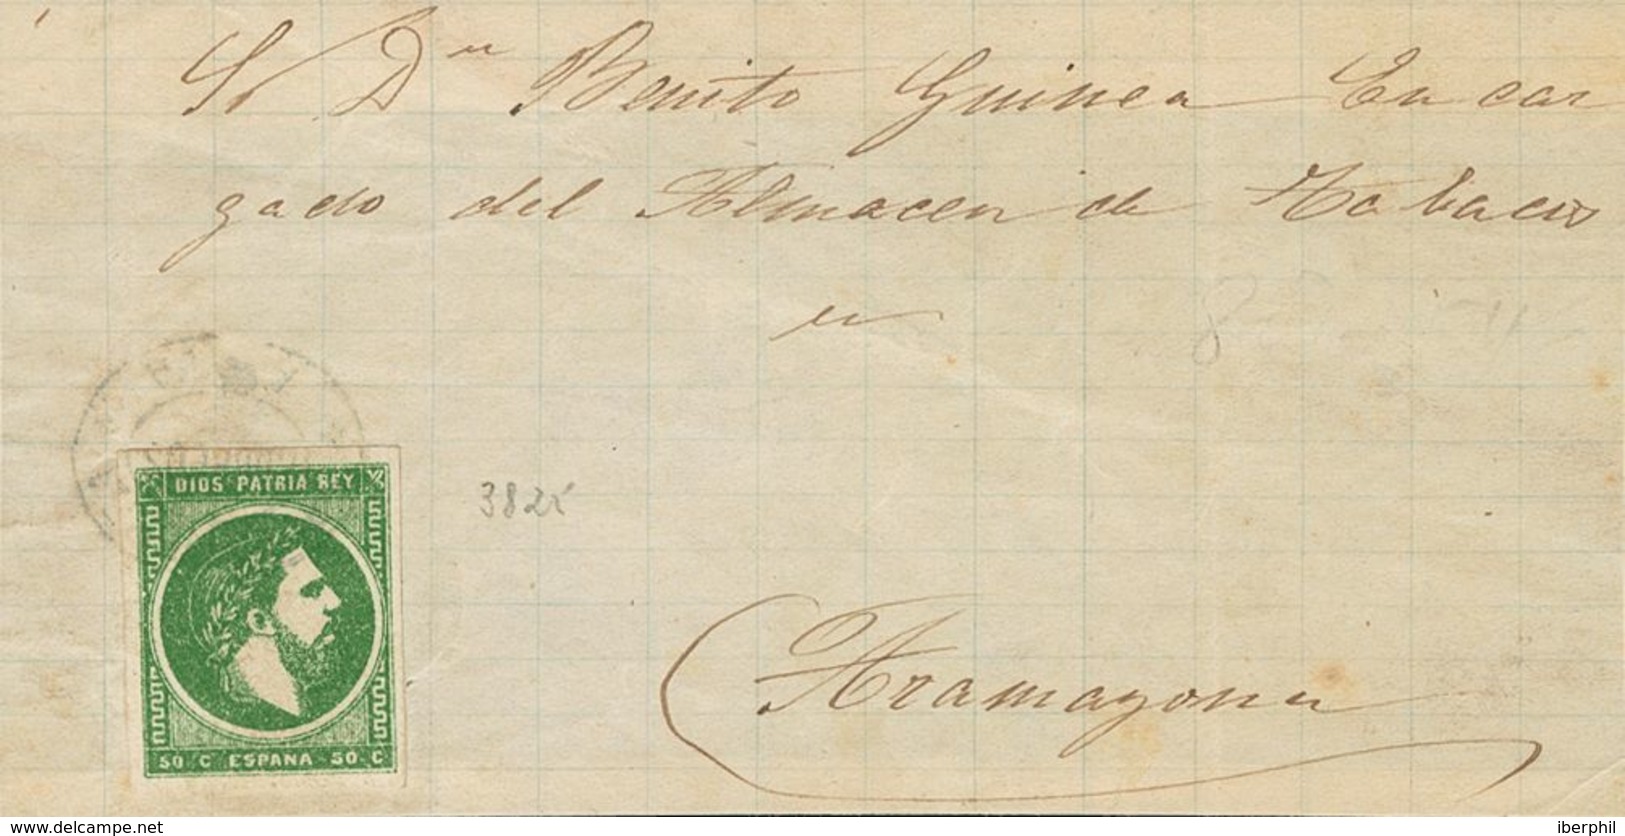 Sr Dn Benito Guinea Encar
gado del Almacen de Tabacos
en
Aramayona
3825
8
DIOS PATRIA REY
50 C ESPAÑA 50 C
www.delcampe.net
iberphil